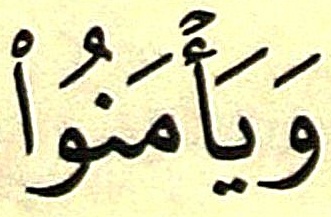 وَيَأۡمَنُواْ